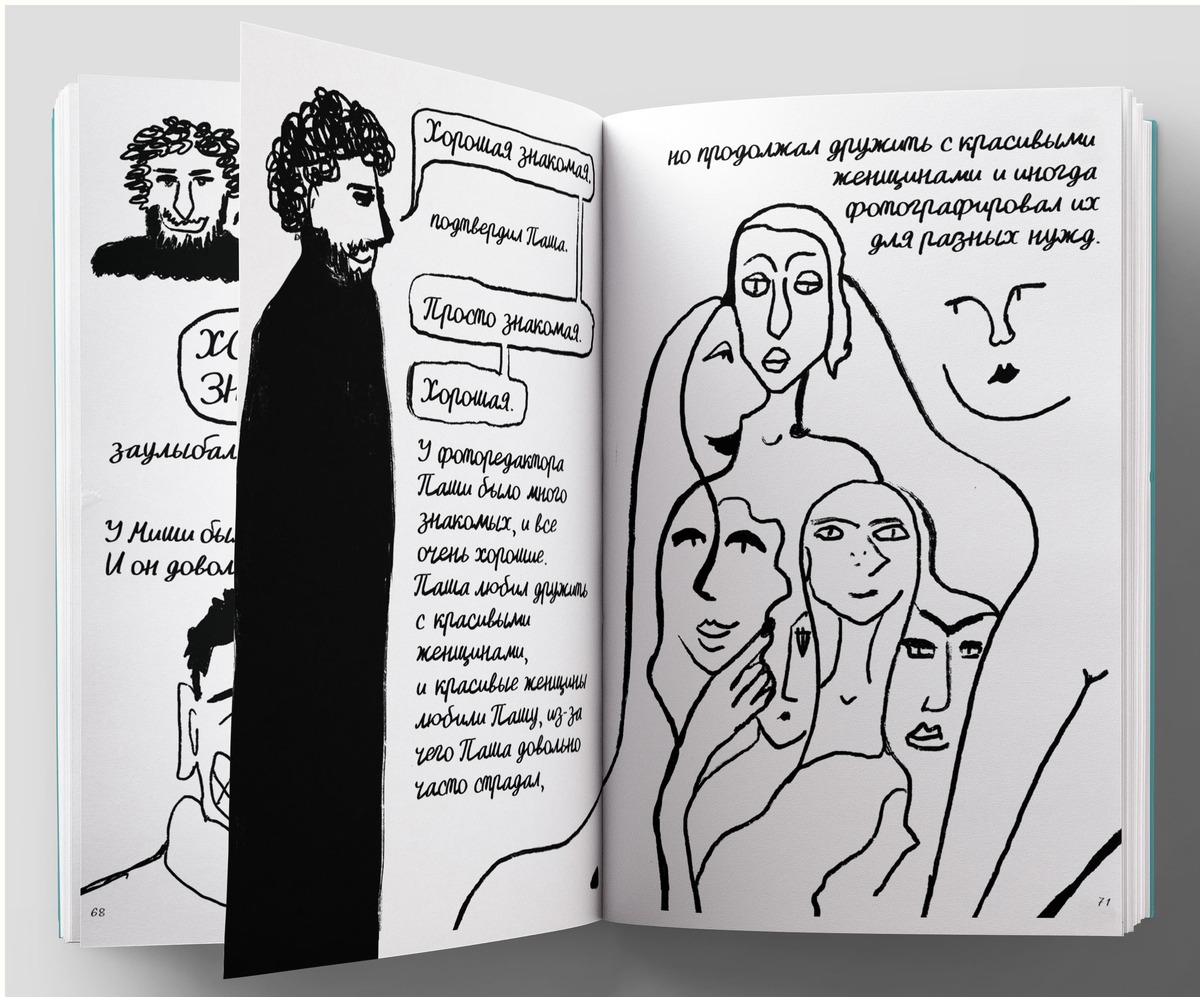 ХО
ЗН
заулыбал
У Миши бы
И он довол
68
Хорошая знакомая.
подтвердил Паша.
Просто знакомая.
Хорошая.
У фоторедактора
Паши было много
знакомых, и все
очень хорошие.
Паша любил дружить
с красивыми
женщинами,
и красивые женщины
любили Пашу, из-за
чего Паша довольно
часто страдал,
но продолжал дружить с красивыми
женщинами и иногда
фотографировал их
для разных нужд.
71